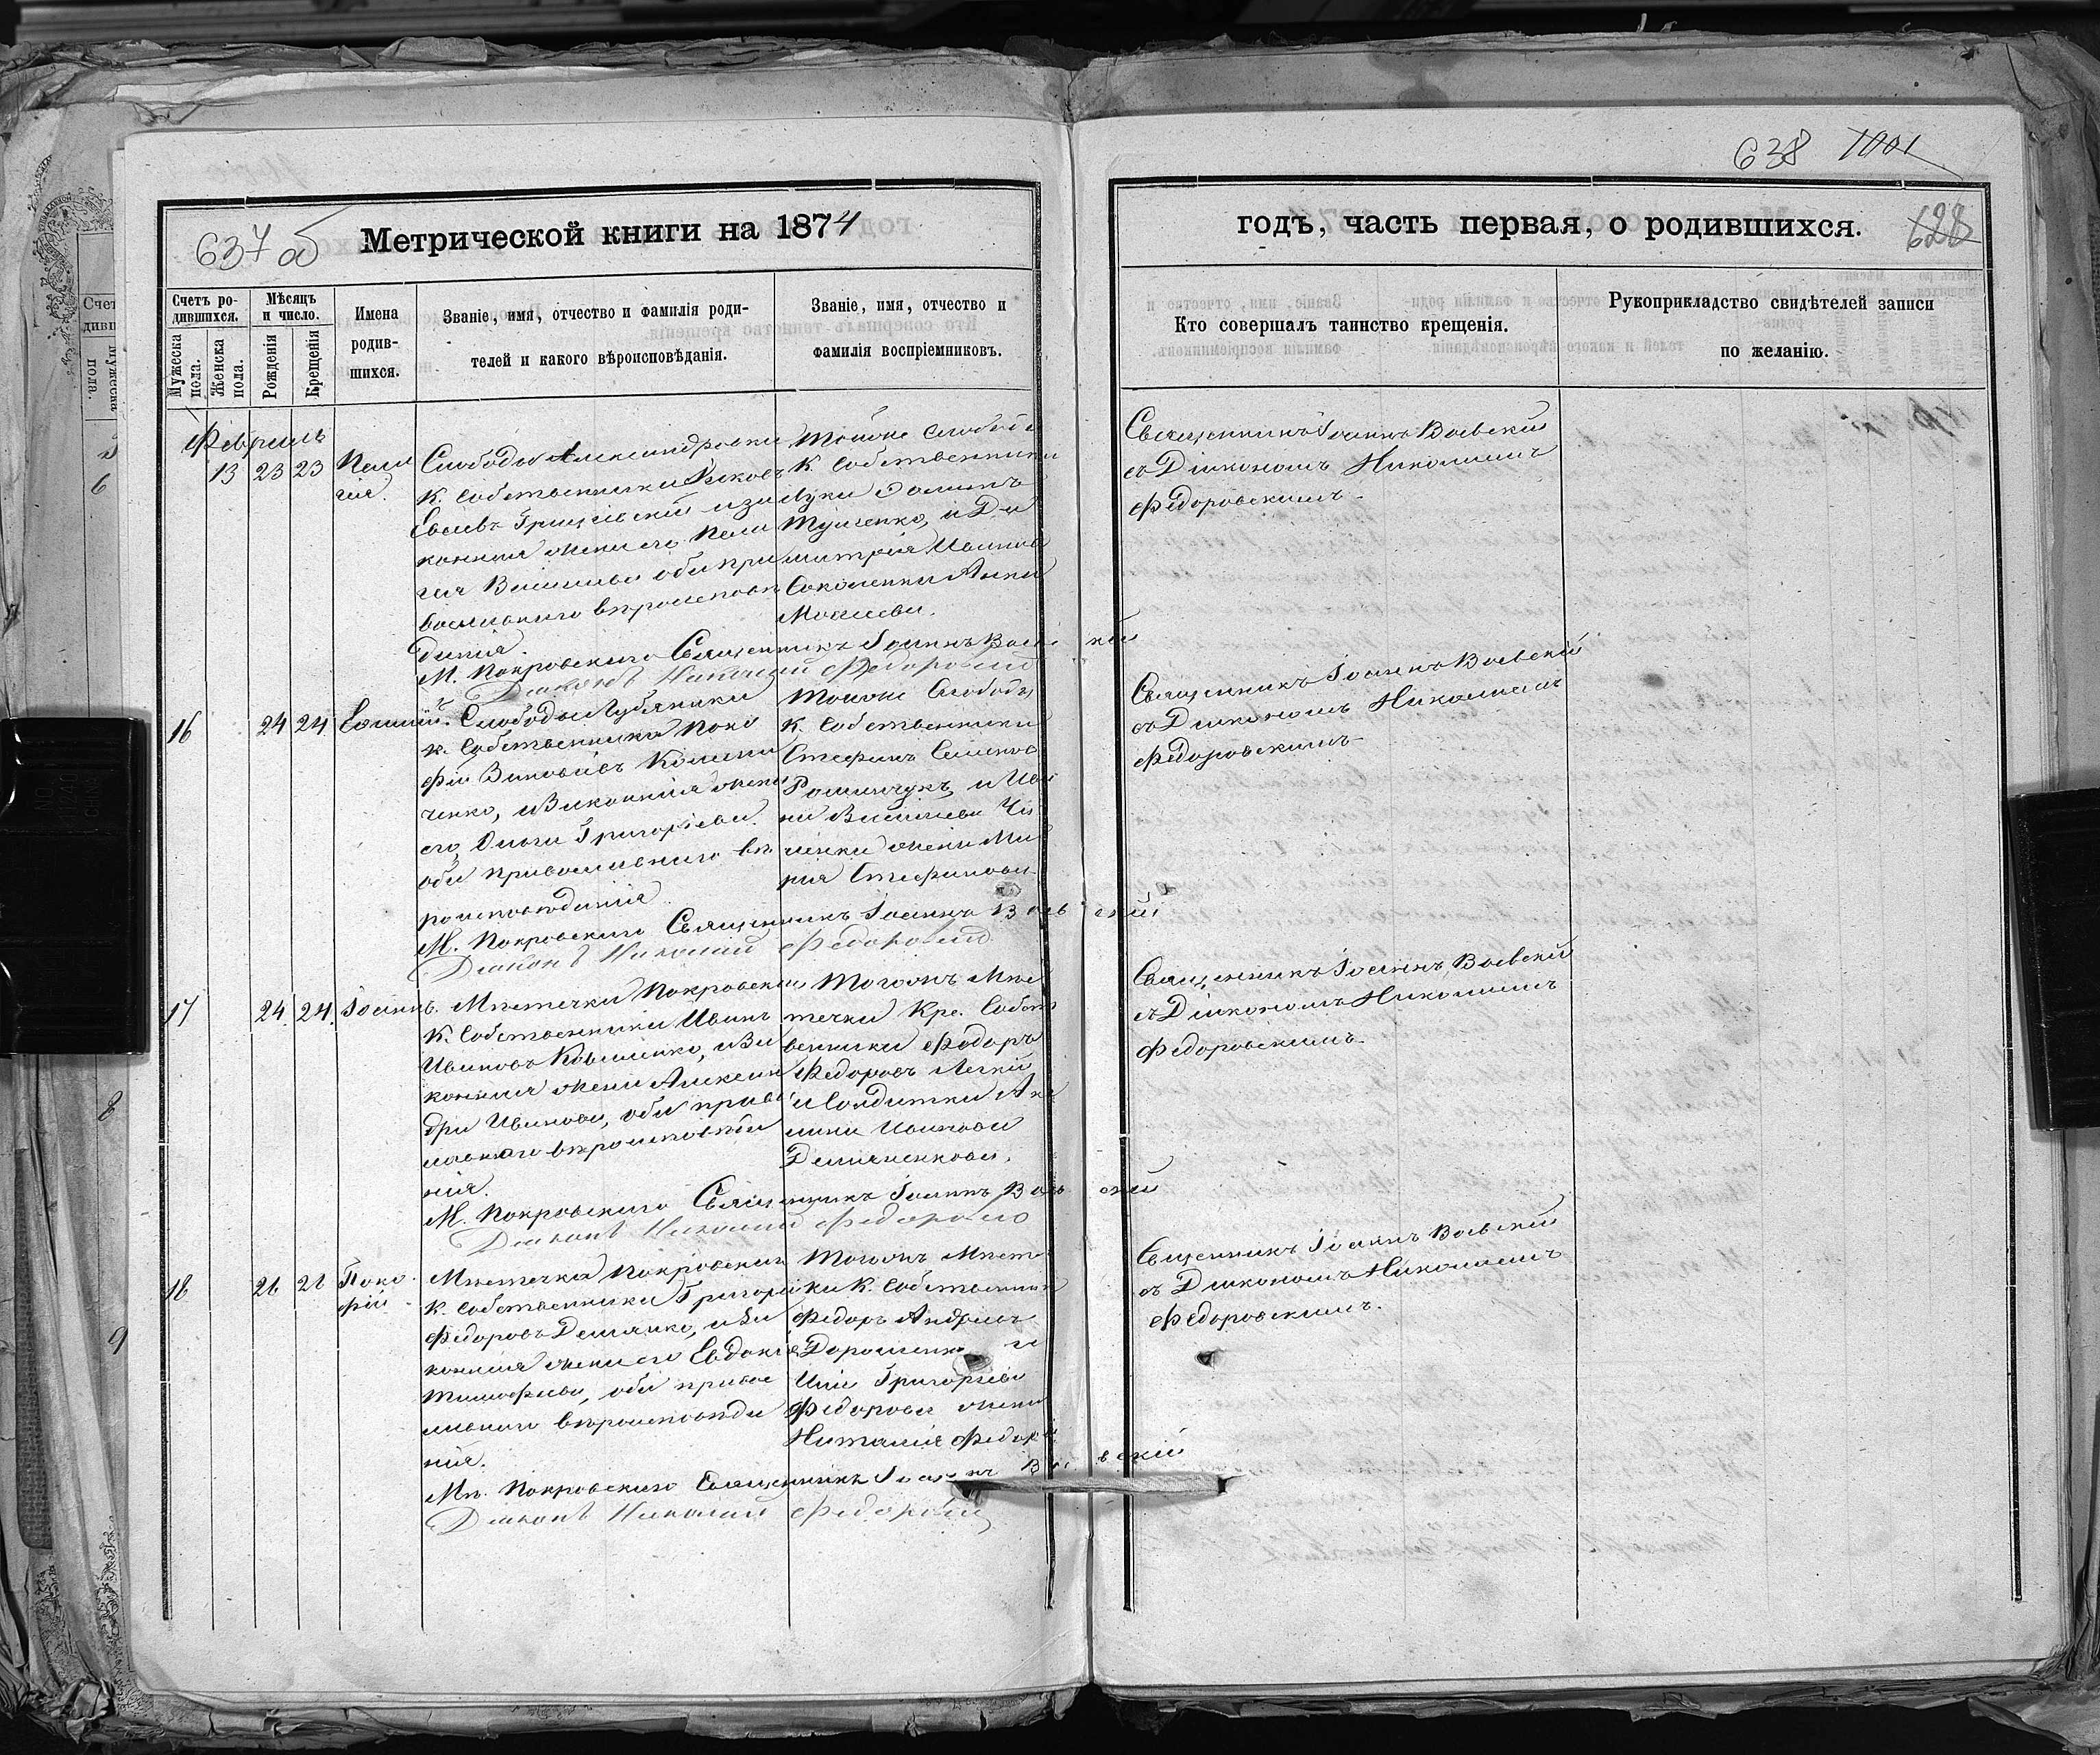 638 1001
637 об
Метрической книги на 1874
годъ, часть первая, о родившихся.
628
Счетъ ро-
дившихся.
Мужеска пола.
Женска пола.
Мѣсяцъ
и число.
Рожденія
Крещенія
Имена
родив-
шихся.
Званіе, имя, отчество и фамилія роди-
телей и какого вѣроисповѣданія.
Званіе, имя, отчество и
фамилія воспріемниковъ.
Кто совершалъ таинство крещенія.
Рукоприкладство свидѣтелей записи
по желанію.
Февраль
13 23 23
Пела
гія.
Слободы Александровки
К. Собственника Яковъ
Евсевъ изза
конная жена его Пела
гія оба пра
вославнаго вѣроисповѣ
данія.
Тойоже Слободы
К. Собственники
Лука
и Ди
митрія Иванова
Анна
Моисеева.
Священникъ Іоаннъ Воевскій
съ Діакономъ Николаемъ
Федоровскимъ
М. Покровскаго Священникъ Іоаннъ Воевскій
Діаконъ Николай Федоровскій
16 24 24
Слободы Лубянки
К. Собственника Проко
фій
ченко, изаконная жена
его, Ольга Григорьева
оба православнаго вѣ
роисповѣданія
Тойоже Слободы
К. Собственники
Стефанъ Семеновъ
Романчукъ, и Ива
на Васильева
жена Ма
рія Стефанова
Священникъ Іоаннъ Воевскій
съ Діакономъ Николаемъ
Федоровскимъ
М. Покровскаго Священникъ Іоаннъ Воевскій
Діаконъ Николай Федоровскій
17 24 24 Іоаннъ.
Мѣстечка Покровскаго
К. Собственника Иванъ
Ивановъ Коваленко, иза
конная жена Алексан
дра Иванова, оба право
славнаго вѣроисповѣда
нія.
Тогожъ Мѣс
течка Кре. Собст
венники Федоръ
Федоровъ Легкій
и Солдатка Аку
лина Иванова
Демяненкова.
Священникъ Іоаннъ Воевскій
съ Діакономъ Николаемъ
Федоровскимъ
М. Покровскаго Священникъ Іоаннъ Воевскій
Діаконъ Николай Федоровскій
18
Проко
фій
Мѣстечка Покровскаго
К. Собственника Григорій
Федоровъ Демянко, иза
конная жена его Евдокія
Тимофеева, оба право
славнаго вѣроисповѣда
нія.
Тогожъ Мѣстеч
ка К. Собственники
Федоръ Андреевъ
Дорошенко и
Григорьева
Федорова жена
Наталія Федорова
Священникъ Іоаннъ Воевскій
съ Діакономъ Николаемъ
Федоровскимъ.
Мѣ. Покровскаго Священникъ Іоаннъ Воевскій
Діаконъ Николай Федоровскій